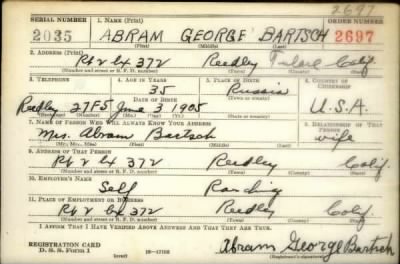 2697
SERIAL NUMBER 1. NAME (Print) ORDER NUMBER
2035 ABRAM GEORGE BARTSCH 2697
(First) (Middle) (Last)
2. ADDRESS (Print)
Rt 2 bx 372 Reedley Tulare Calif.
(Number and street or R. F. D. number) (Town) (County) (State)
3. TELEPHONE 4. AGE IN YEARS 5. PLACE OF BIRTH 6. COUNTRY OF CITIZENSHIP
35 Russia
DATE OF BIRTH (Town or county)
Reedley 27F5 June 3 1905 U.S.A.
(Exchange) (Number) (Mo.) (Day) (Yr.) (State or country)
7. NAME OF PERSON WHO WILL ALWAYS KNOW YOUR ADDRESS 8. RELATIONSHIP OF THAT PERSON
Mrs. Abram Bartsch wife
(Mr., Mrs., Miss) (First) (Middle) (Last)
9. ADDRESS OF THAT PERSON
Rt 2 bx 372 Reedley Calif.
(Number and street or R. F. D. number) (Town) (County) (State)
10. EMPLOYER'S NAME
Self
11. PLACE OF EMPLOYMENT OR BUSINESS
Rt 2 bx 372 Reedley Calif.
(Number and street or R. F. D. number) (Town) (County) (State)
I AFFIRM THAT I HAVE VERIFIED ABOVE ANSWERS AND THAT THEY ARE TRUE.
REGISTRATION CARD
D. S. S. Form 1 Abram George Bartsch
(Registrant's signature)